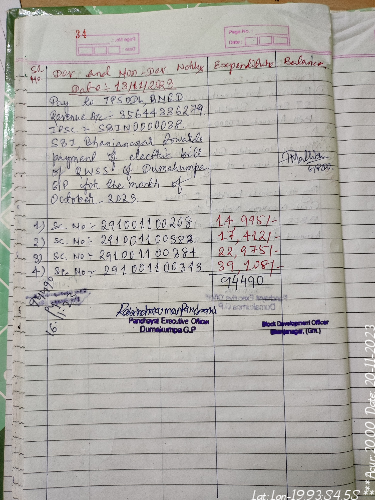 34
Page No.
Date:
Sl. No
Par And Non-Par Notify
Expenditure
Balance
Date:
Pay to TPSODL BNED
Revenue Ac - 35644386279
IFSC = SBIN0000038
SBI Bhanjanagar towards
payment of electric bill
of RWSS of Dumakumpa
GP for the month of
October - 2023
1) Sc. No = 291001100268 14,995/-
2) Sc. No = 291001100582 17,412/-
3) Sc. No = 291001100781 22,975/-
4) Sc. No = 291001100
94490
Panchayat Executive Officer
Dumakumpa G.P
Block Development Officer
Bhanjanagar, (Gm.)
Date 20-11-2023
Lat: Lon-19.93 84.58